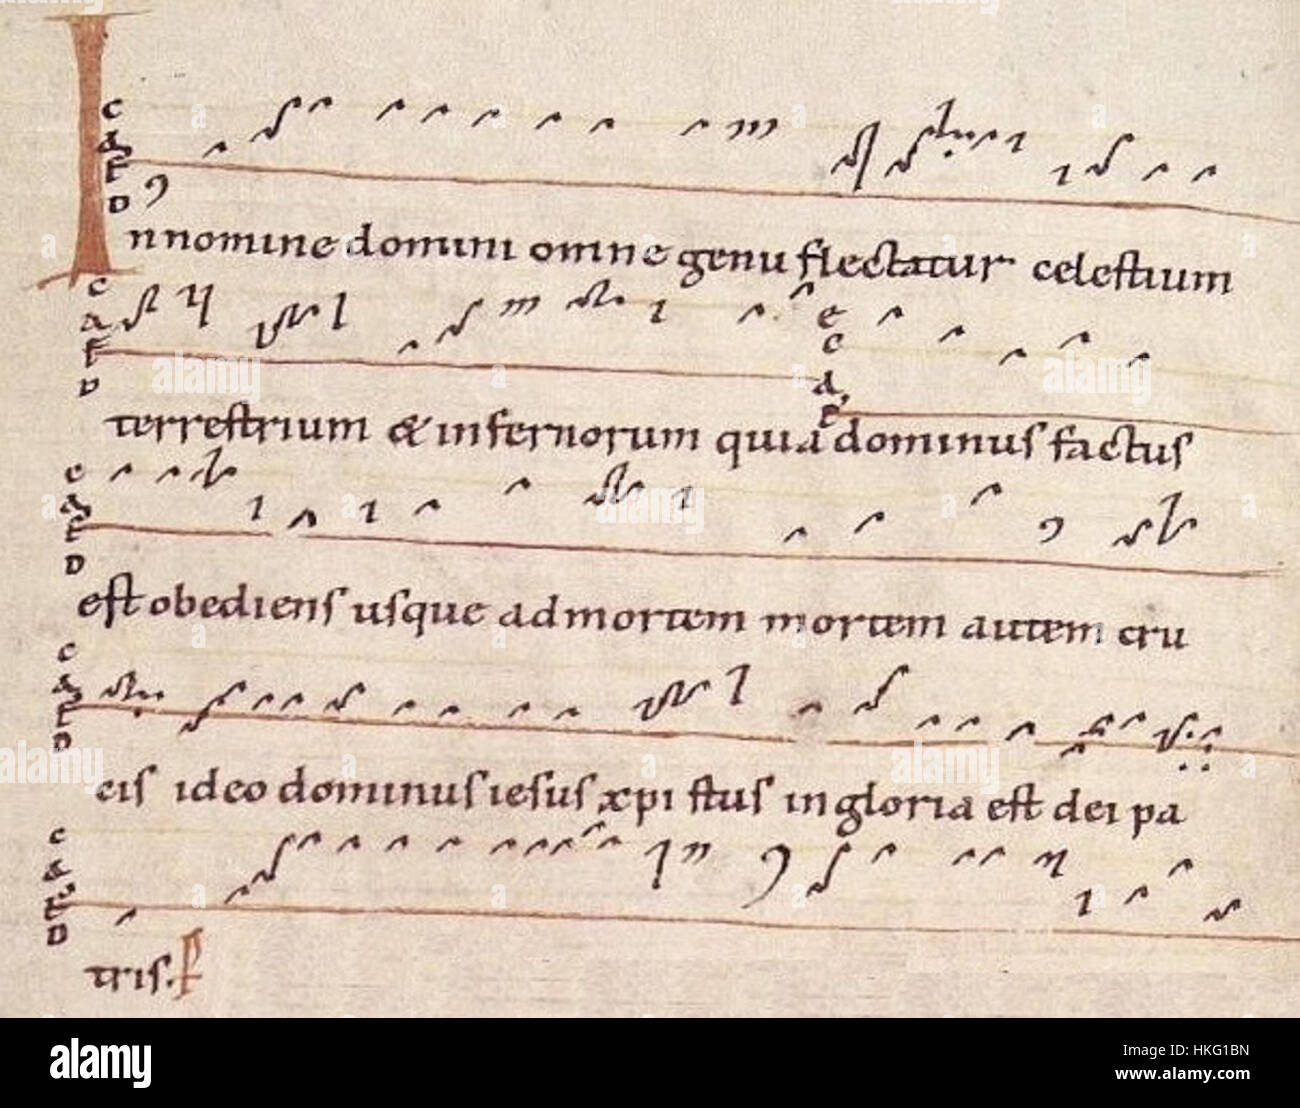 In nomine domini omne genu flectatur celestium
terrestrium & infernorum quia dominus factus
est obediens usque ad mortem mortem autem cru
cis ideo dominus iesus xpistus in gloria est dei pa
tris. P
alamy
Image ID: HKG1BN
www.alamy.com